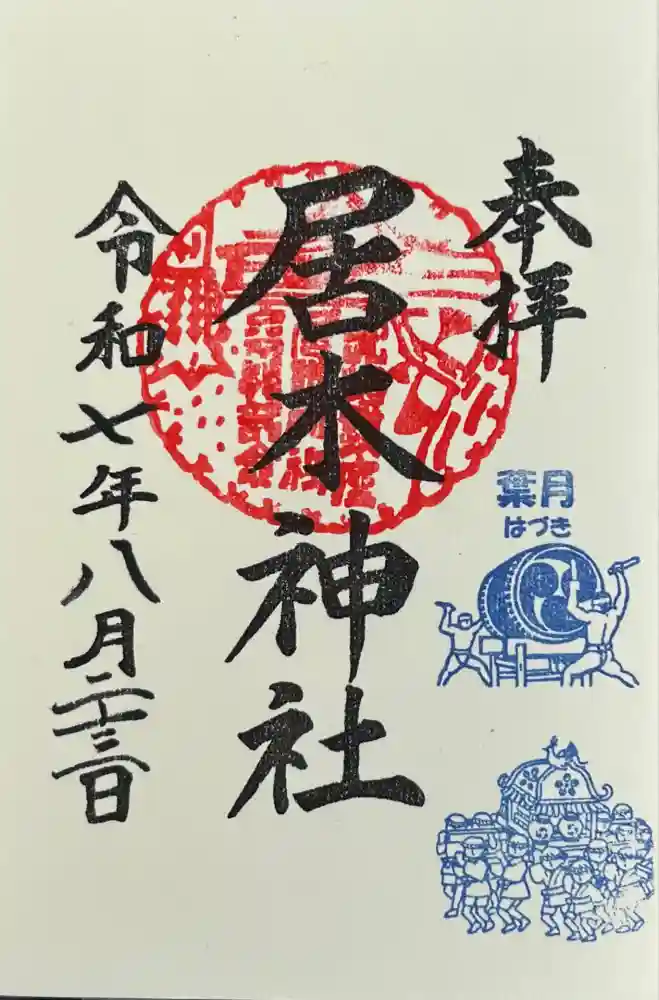 奉拝
居木神社
令和七年八月二十三日
葉月
はづき